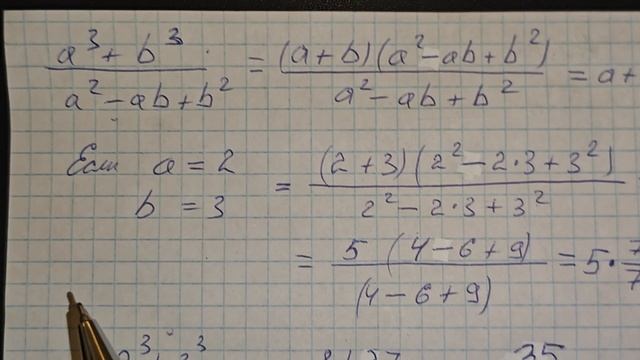 (a³ + b³)/(a² − ab + b²) = (a + b)(a² − ab + b²)/(a² − ab + b²) = a +
Если a = 2
b = 3
= (2 + 3)(2² − 2·3 + 3²)/(2² − 2·3 + 3²)
= 5 (4 − 6 + 9)/(4 − 6 + 9) = 5 · 7/7
35